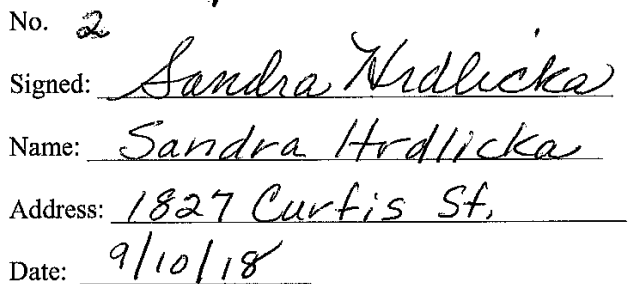 No. 2
Signed: Sandra Hrdlicka
Name: Sandra Hrdlicka
Address: 1827 Curtis St.
Date: 9/10/18